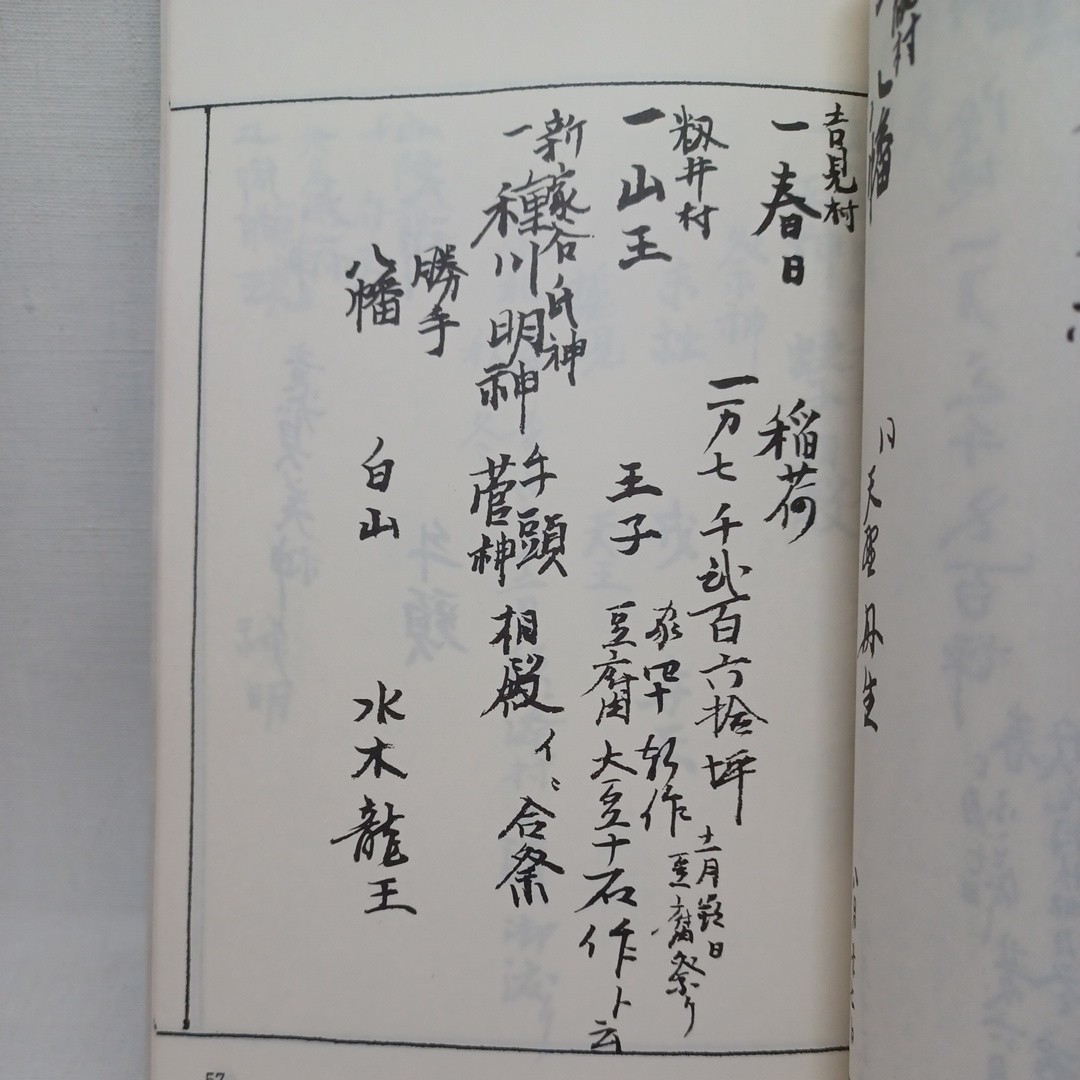 吉見村
一 春日 稲荷
一 万七千弐百六拾坪
籾井村
一 山王 王子
家四十 軒作 十一月 日 豆腐祭り
豆腐 大豆十石作ト云
新家谷氏神
一 種川明神 牛頭 菅神 相殿 イニ合祭
勝手
八幡 白山 水木龍王
57
八幡
丹生